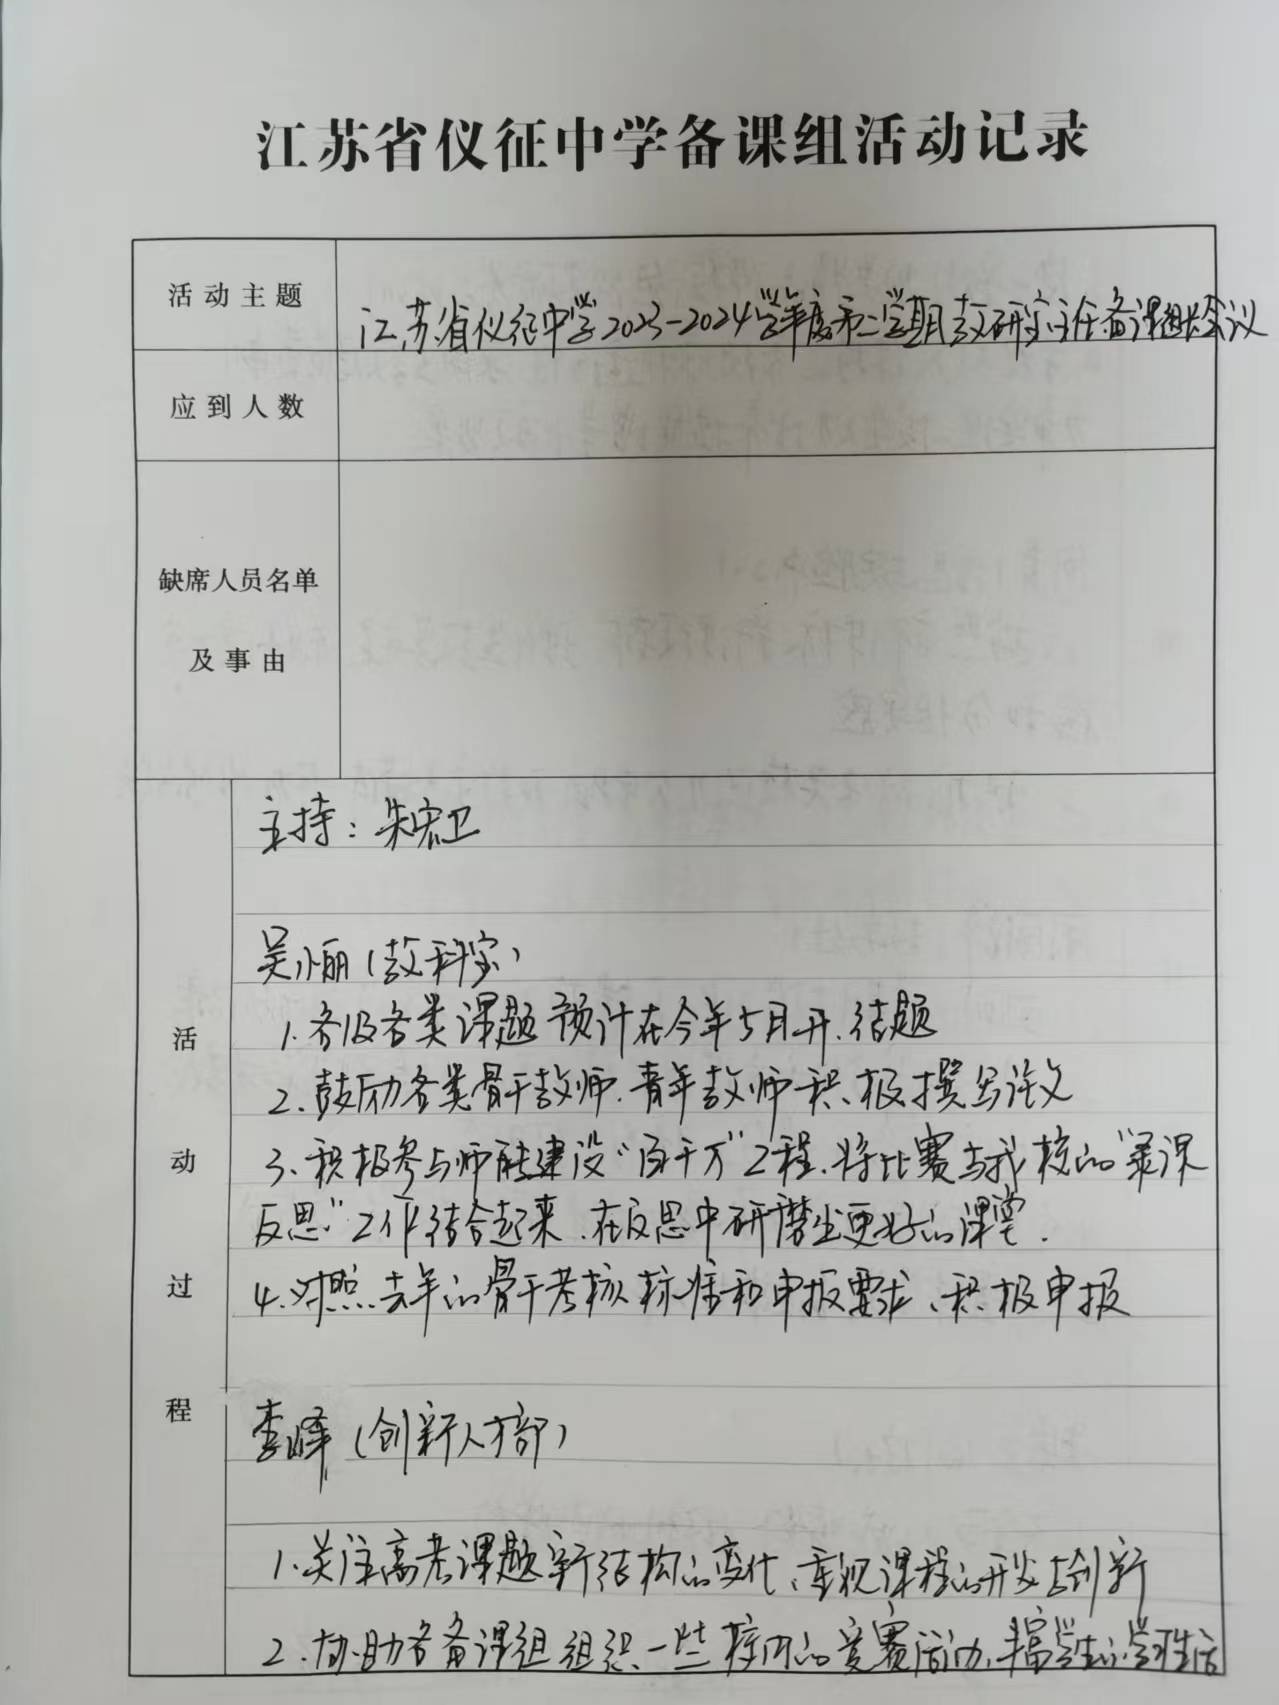 江苏省仪征中学备课组活动记录
活动主题
江苏省仪征中学2023-2024学年度第二学期教研室主任备课组长会议
应到人数
缺席人员名单
及事由
活动过程
主持：朱宏卫
吴小丽（教科室）
1、各级各类课题预计在今年5月开、结题
2、鼓励各类骨干教师、青年教师积极撰写论文
3、积极参与师能建设“百千万”工程、将比赛与我校的“录课
反思”工作结合起来、在反思中研磨出更好的课堂.
4、对照去年的骨干考核标准和申报要求、积极申报
李峰（创新人才部）
1、关注高考课题新结构的变化、重视课程的开发与创新
2、协助各备课组组织一些校内的竞赛活动、丰富学生的学习生活